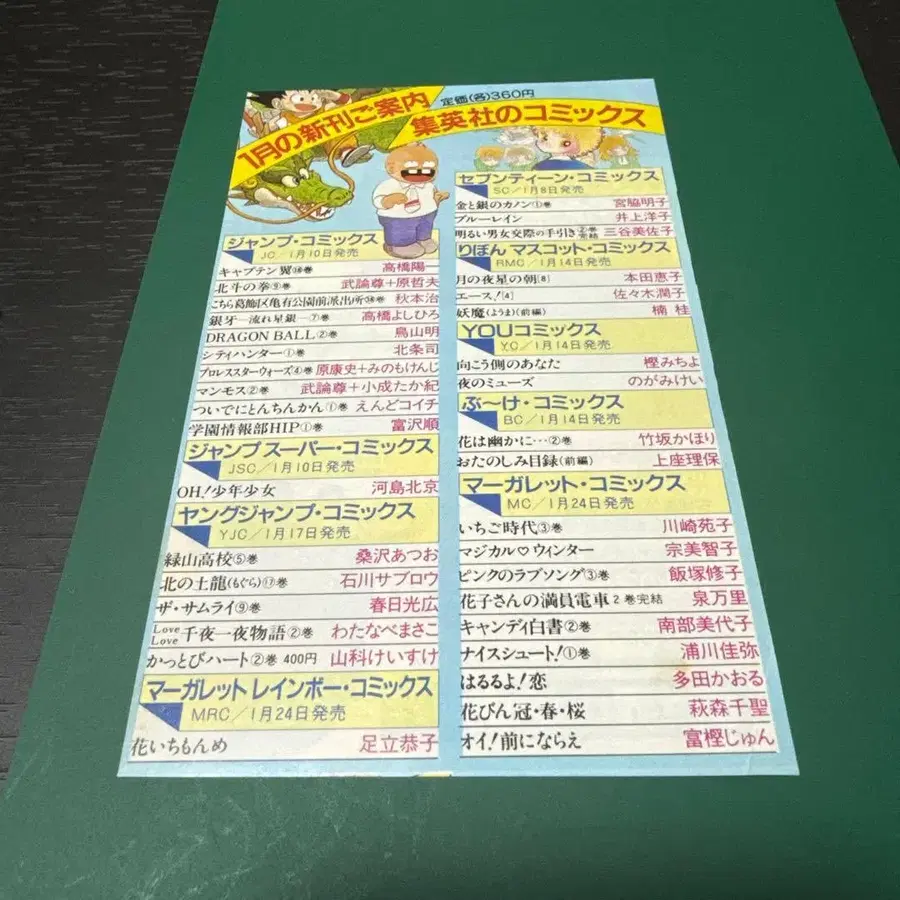 1月の新刊ご案内
定価(各)360円
集英社のコミックス
ジャンプ・コミックス
JC/1月10日発売
キャプテン翼⑱巻 高橋陽一
北斗の拳⑨巻 武論尊+原哲夫
こちら葛飾区亀有公園前派出所 巻 秋本治
銀牙―流れ星銀―⑦巻 高橋よしひろ
DRAGON BALL②巻 鳥山明
シティハンター①巻 北条司
プロレススターウォーズ④巻 原康史+みのもけんじ
マンモス②巻 武論尊+小成たか紀
ついでにとんちんかん①巻 えんどコイチ
学園情報部HIP①巻 富沢順
ジャンプスーパー・コミックス
JSC/1月10日発売
OH!少年少女 河島北京
ヤングジャンプ・コミックス
YJC/1月17日発売
緑山高校⑤巻 桑沢あつお
北の土龍(もぐら)⑰巻 石川サブロウ
ザ・サムライ⑨巻 春日光広
Love Love 千夜一夜物語②巻 わたなべまさこ
かっとびハート②巻 400円 山科けいすけ
マーガレットレインボー・コミックス
MRC/1月24日発売
花いちもんめ 足立恭子
セブンティーン・コミックス
SC/1月8日発売
金と銀のカノン①巻 宮脇明子
ブルーレイン 井上洋子
明るい男女交際の手引き②巻完結 三谷美佐子
りぼんマスコット・コミックス
RMC/1月14日発売
月の夜星の朝[8] 本田恵子
エース![4] 佐々木潤子
妖魔(ようま)(前編) 楠桂
YOUコミックス
YC/1月14日発売
向こう側のあなた 樫みちよ
夜のミューズ のがみけい
ぶ〜け・コミックス
BC/1月14日発売
花は幽かに…②巻 竹坂かほり
おたのしみ目録(前編) 上座理保
マーガレット・コミックス
MC/1月24日発売
いちご時代③巻 川崎苑子
マジカル♡ウィンター 宗美智子
ピンクのラブソング③巻 飯塚修子
花子さんの満員電車2巻完結 泉万里
キャンディ白書②巻 南部美代子
ナイスシュート!①巻 浦川佳弥
はるるよ!恋 多田かおる
花びん冠・春・桜 萩森千聖
オイ!前にならえ 富樫じゅん